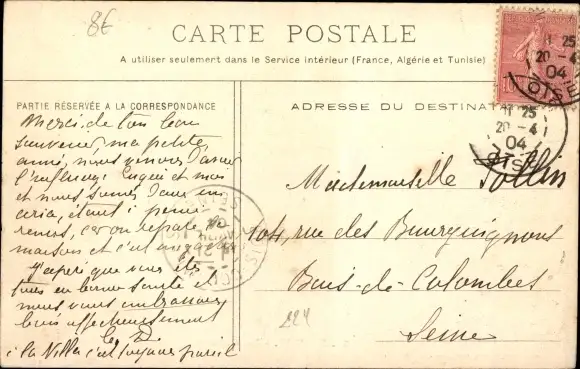 8€
CARTE POSTALE
A utiliser seulement dans le Service intérieur (France, Algérie et Tunisie)
PARTIE RÉSERVÉE A LA CORRESPONDANCE
Merci de ton bon
souvenir, ma petite
amie, nous venons d'avoir
l'influenza et moi
et nous sommes dans un
car on répare la
maison et c'est
J'espère que vous êtes
tous en bonne santé et
nous vous embrassons
bien affectueusement
à la Villa c'est toujours pareil
ADRESSE DU DESTINAT
Mademoiselle Sollin
104, rue des Bourguignons
Bois-de-Colombes
Seine
224
11 25
20-4
04
OISE
11 25
20-4
04
OISE